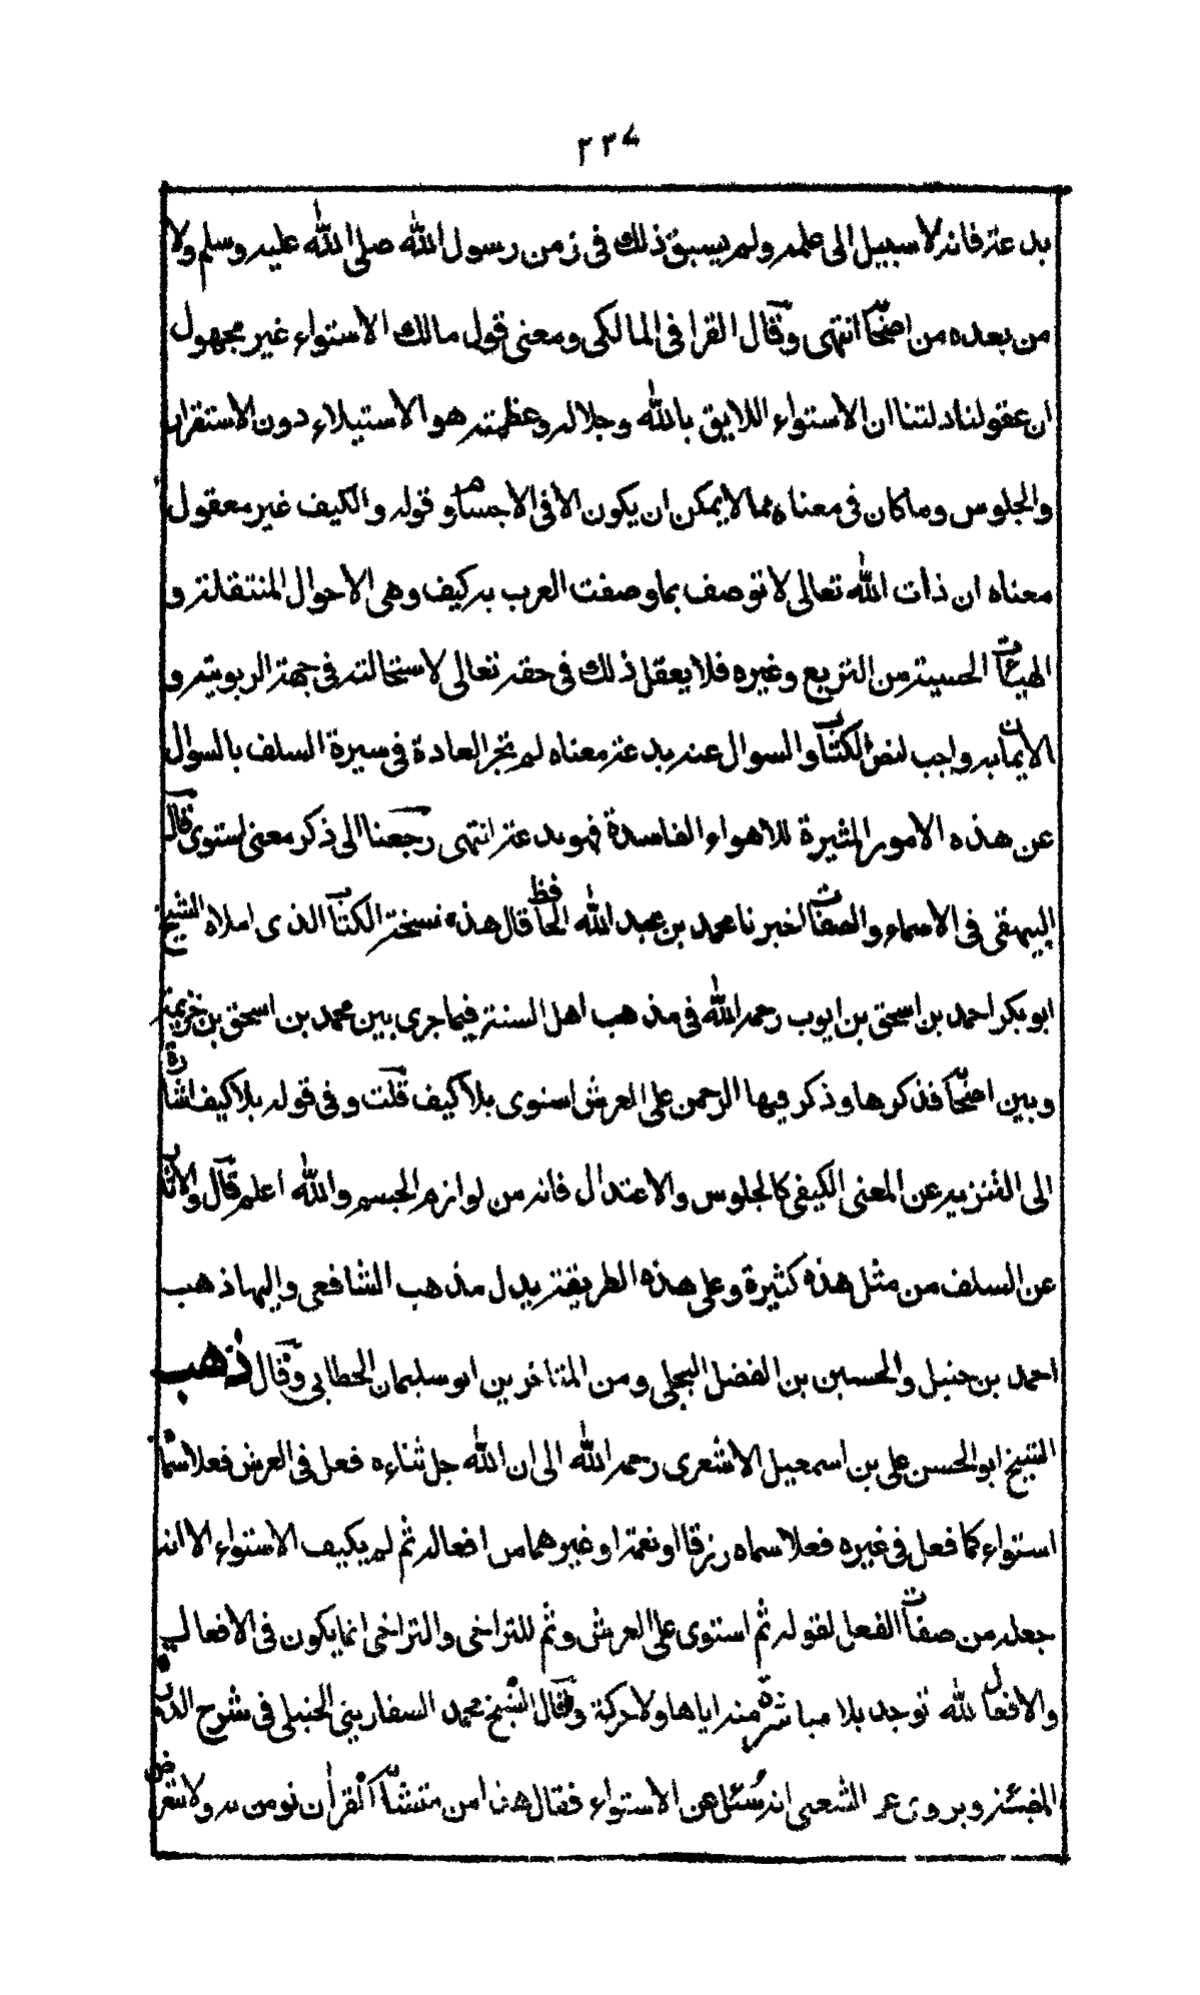 ٢٣٧
بدعة فانه لا سبيل الى علمه ولم يسبق ذلك فى زمن رسول الله صلى الله عليه وسلم ولا
من بعده من اصحابه انتهى وقال القرافى المالكى ومعنى قول مالك الاستواء غير مجهول
ان عقولنا دلتنا ان الاستواء اللايق بالله وجلاله وعظمته هو الاستيلاء دون الاستقرار
والجلوس وما كان فى معناه مما لا يمكن ان يكون الا فى الاجسام وقوله والكيف غير معقول
معناه ان ذات الله تعالى لا توصف بما وصفت العرب به كيف وهى الاحوال المنتقلة و
الهيئات الحسية من التربيع وغيره فلا يعقل ذلك فى حقه تعالى لاستحالته فى جهة الربوبية و
الايمان به واجب لنص الكتاب والسوال عنه بدعة معناه لم تجر العادة فى سيرة السلف بالسوال
عن هذه الامور المثيرة للاهواء الفاسدة فهو بدعة انتهى رجعنا الى ذكر معنى استوى قال
البيهقى فى الاسماء والصفات اخبرنا محمد بن عبد الله الحافظ قال هذه نسخة الكتاب الذى املاه الشيخ
ابو بكر احمد بن اسحق بن ايوب رحمه الله فى مذهب اهل السنة فيما جرى بين محمد بن اسحق بن خزيمة
وبين اصحابه فذكرها وذكر فيها الرحمن على العرش استوى بلا كيف قلت وفى قوله بلا كيف اشارة
الى التنزيه عن المعنى الكيفى كالجلوس والاعتدال فانه من لوازم الجسم والله اعلم قال والاثار
عن السلف من مثل هذه كثيرة وعلى هذه الطريقة يدل مذهب الشافعى واليها ذهب
احمد بن حنبل والحسين بن الفضل البجلى ومن المتاخرين ابو سليمان الخطابى وقال ذهب
الشيخ ابو الحسن على بن اسمعيل الاشعرى رحمه الله الى ان الله جل ثناءه فعل فى العرش فعلا سماه
استواء كما فعل فى غيره فعلا سماه رزقا او نعمة او غيرهما من افعاله ثم لم يكيف الاستواء الا انه
جعله من صفات الفعل لقوله ثم استوى على العرش وثم للتراخى والتراخى انما يكون فى الافعال
والافعال لله توجد بلا مباشرة منه اياها ولا حركة وقال الشيخ محمد السفارينى الحنبلى فى شرح الدرة
المضيئة ويروى عن الشعبى انه سئل عن الاستواء فقال هذا من متشابه القرآن نومن به ولا نتعرض